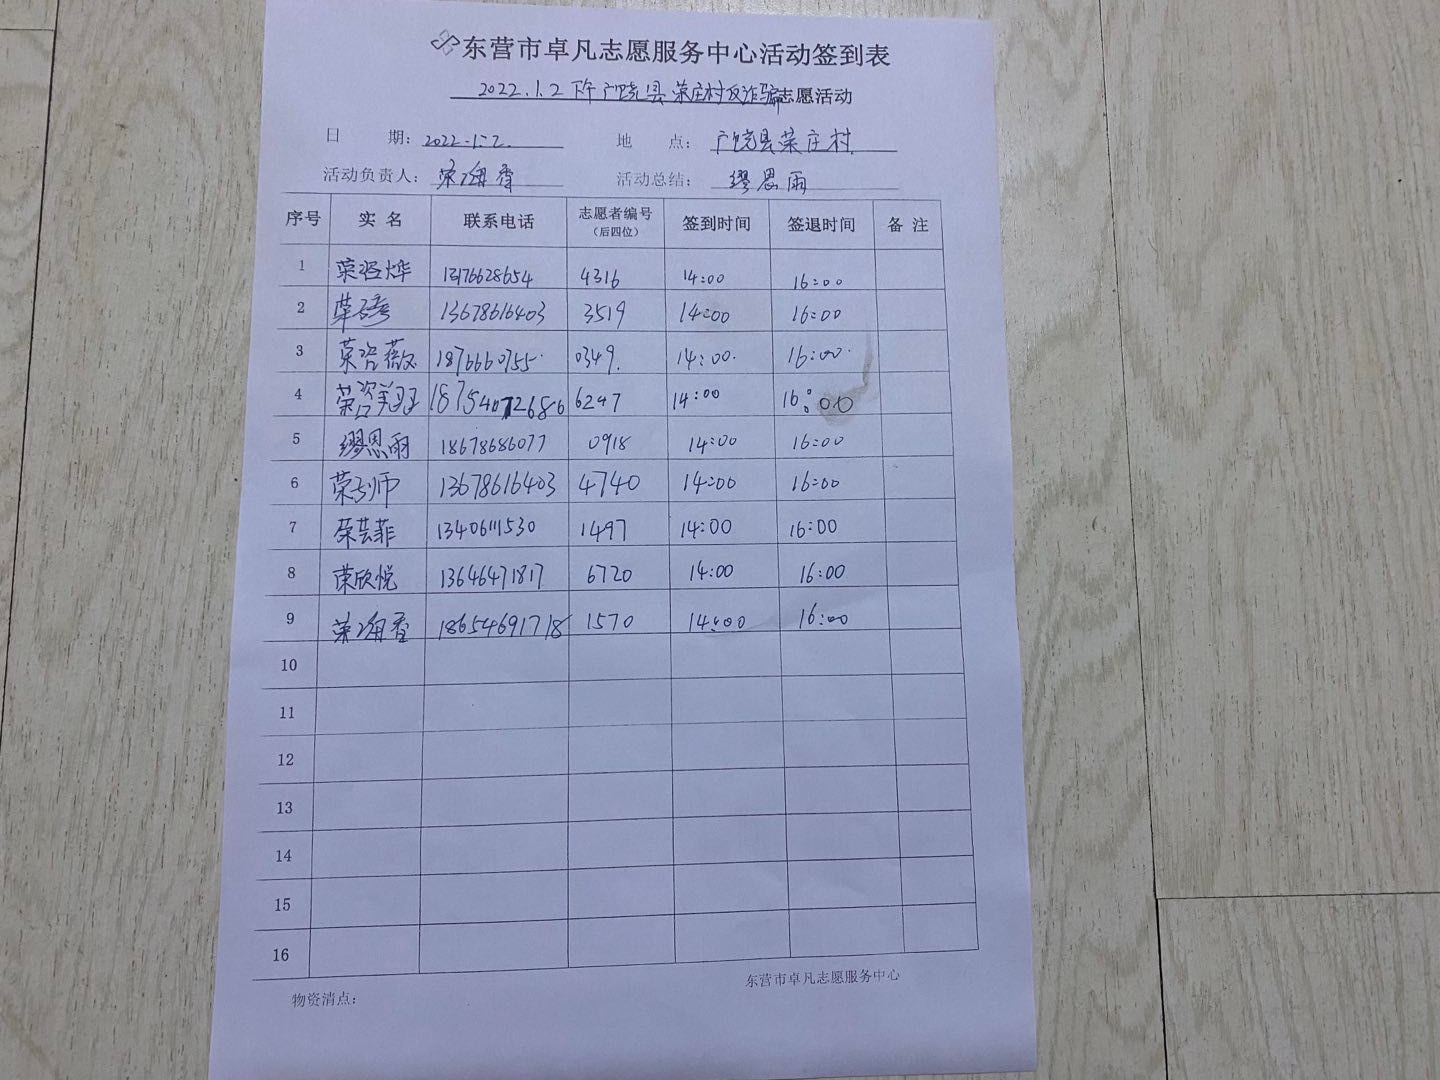 东营市卓凡志愿服务中心活动签到表
2022.1.2下午广饶县荣庄村反诈骗志愿活动
日 期：2022.1.2. 地 点：广饶县荣庄村
活动负责人：荣海香 活动总结：缪恩雨
序号 实 名 联系电话 志愿者编号（后四位） 签到时间 签退时间 备 注
1 13176628654 4316 14:00 16:00
2 13678616403 3519 14:00 16:00
3 荣咨薇 1876660755 0349. 14:00 16:00
4 荣咨翔 18754072686 6247 14:00 16:00
5 缪恩雨 18678686077 0918 14:00 16:00
6 13678616403 4740 14:00 16:00
7 荣芸菲 13406111530 1497 14:00 16:00
8 荣欣悦 13646471817 6720 14:00 16:00
9 荣海香 18654691718 1570 14:00 16:00
10
11
12
13
14
15
16
物资清点： 东营市卓凡志愿服务中心